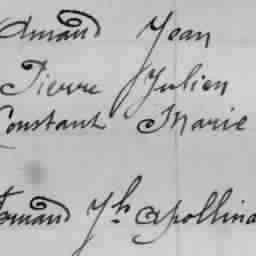 Amand Jean
Pierre Julien
Constant Marie
Armand Jh Apollina